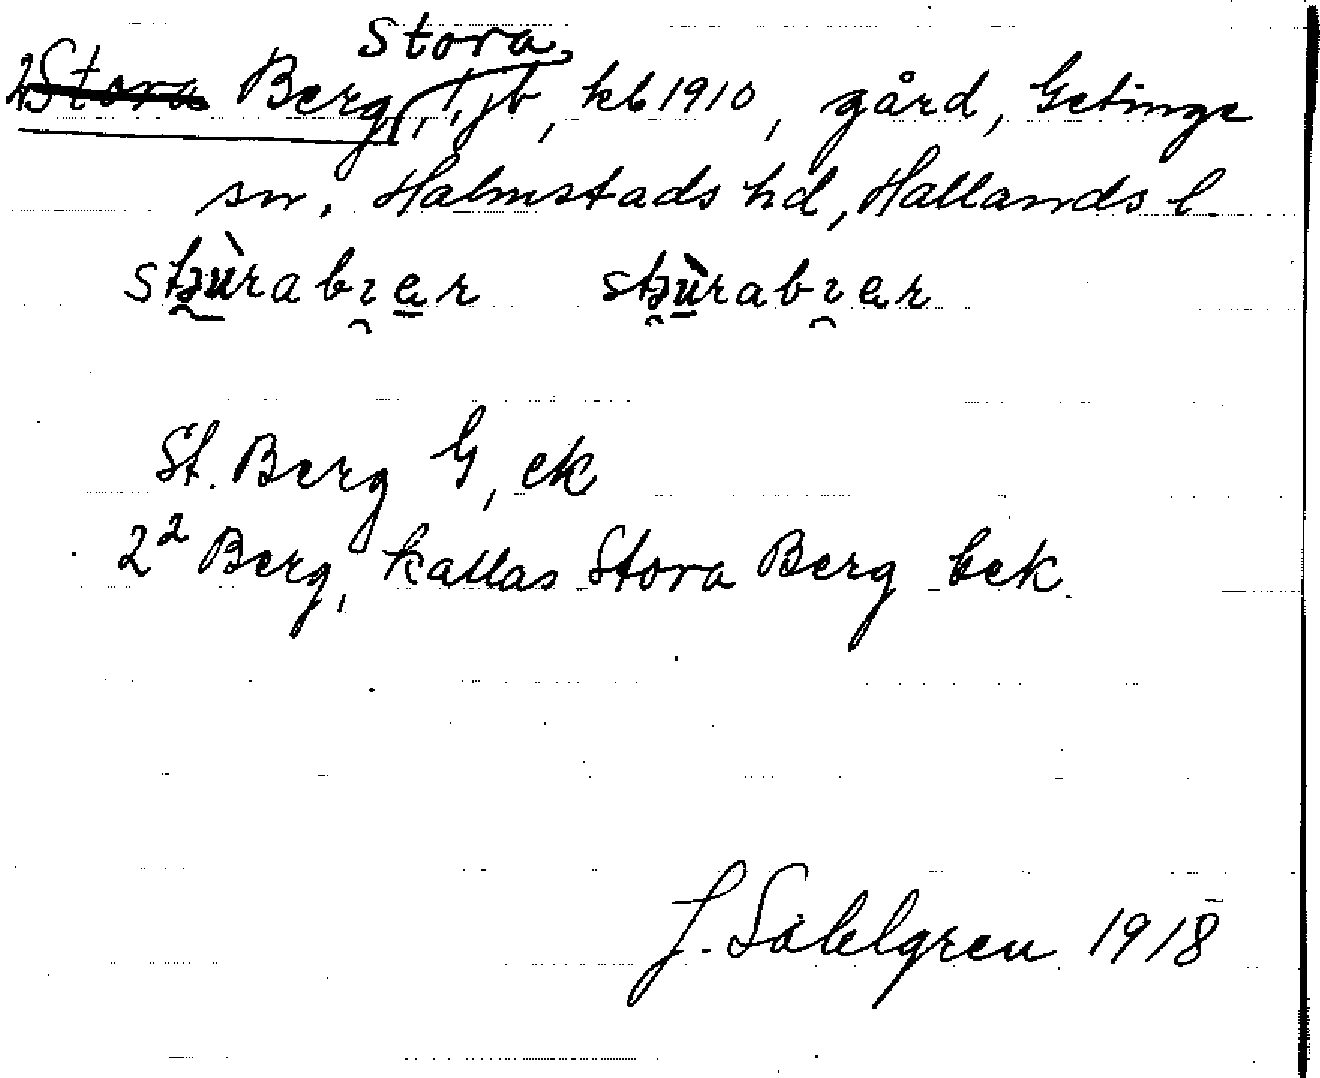 Stora
2 Stora Berg, jb, kb 1910, gård, Getinge
sn. Halmstads hd, Hallands l.
St. Berg G, ek
2² Berg, kallas Stora Berg bek.
J. Sahlgren 1918